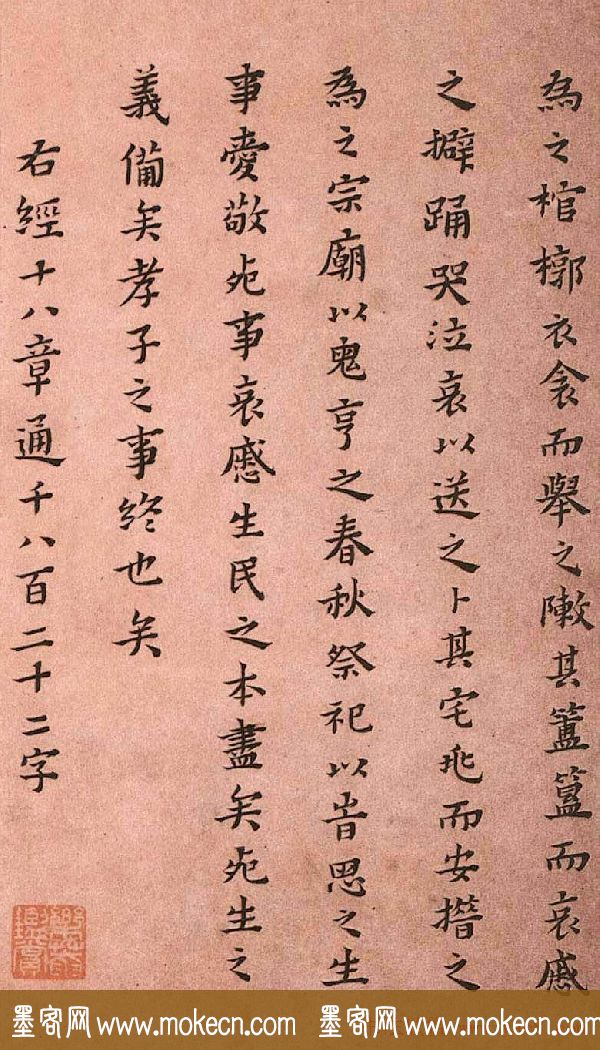 為之棺槨衣衾而舉之敶其簠簋而哀慼
之擗踊哭泣哀以送之卜其宅兆而安措之
為之宗廟以鬼亨之春秋祭祀以旹思之生
事愛敬死事哀慼生民之本盡矣死生之
義備矣孝子之事終也矣
右經十八章通千八百二十二字
墨客网 www.mokecn.com 墨客网 www.mokecn.com